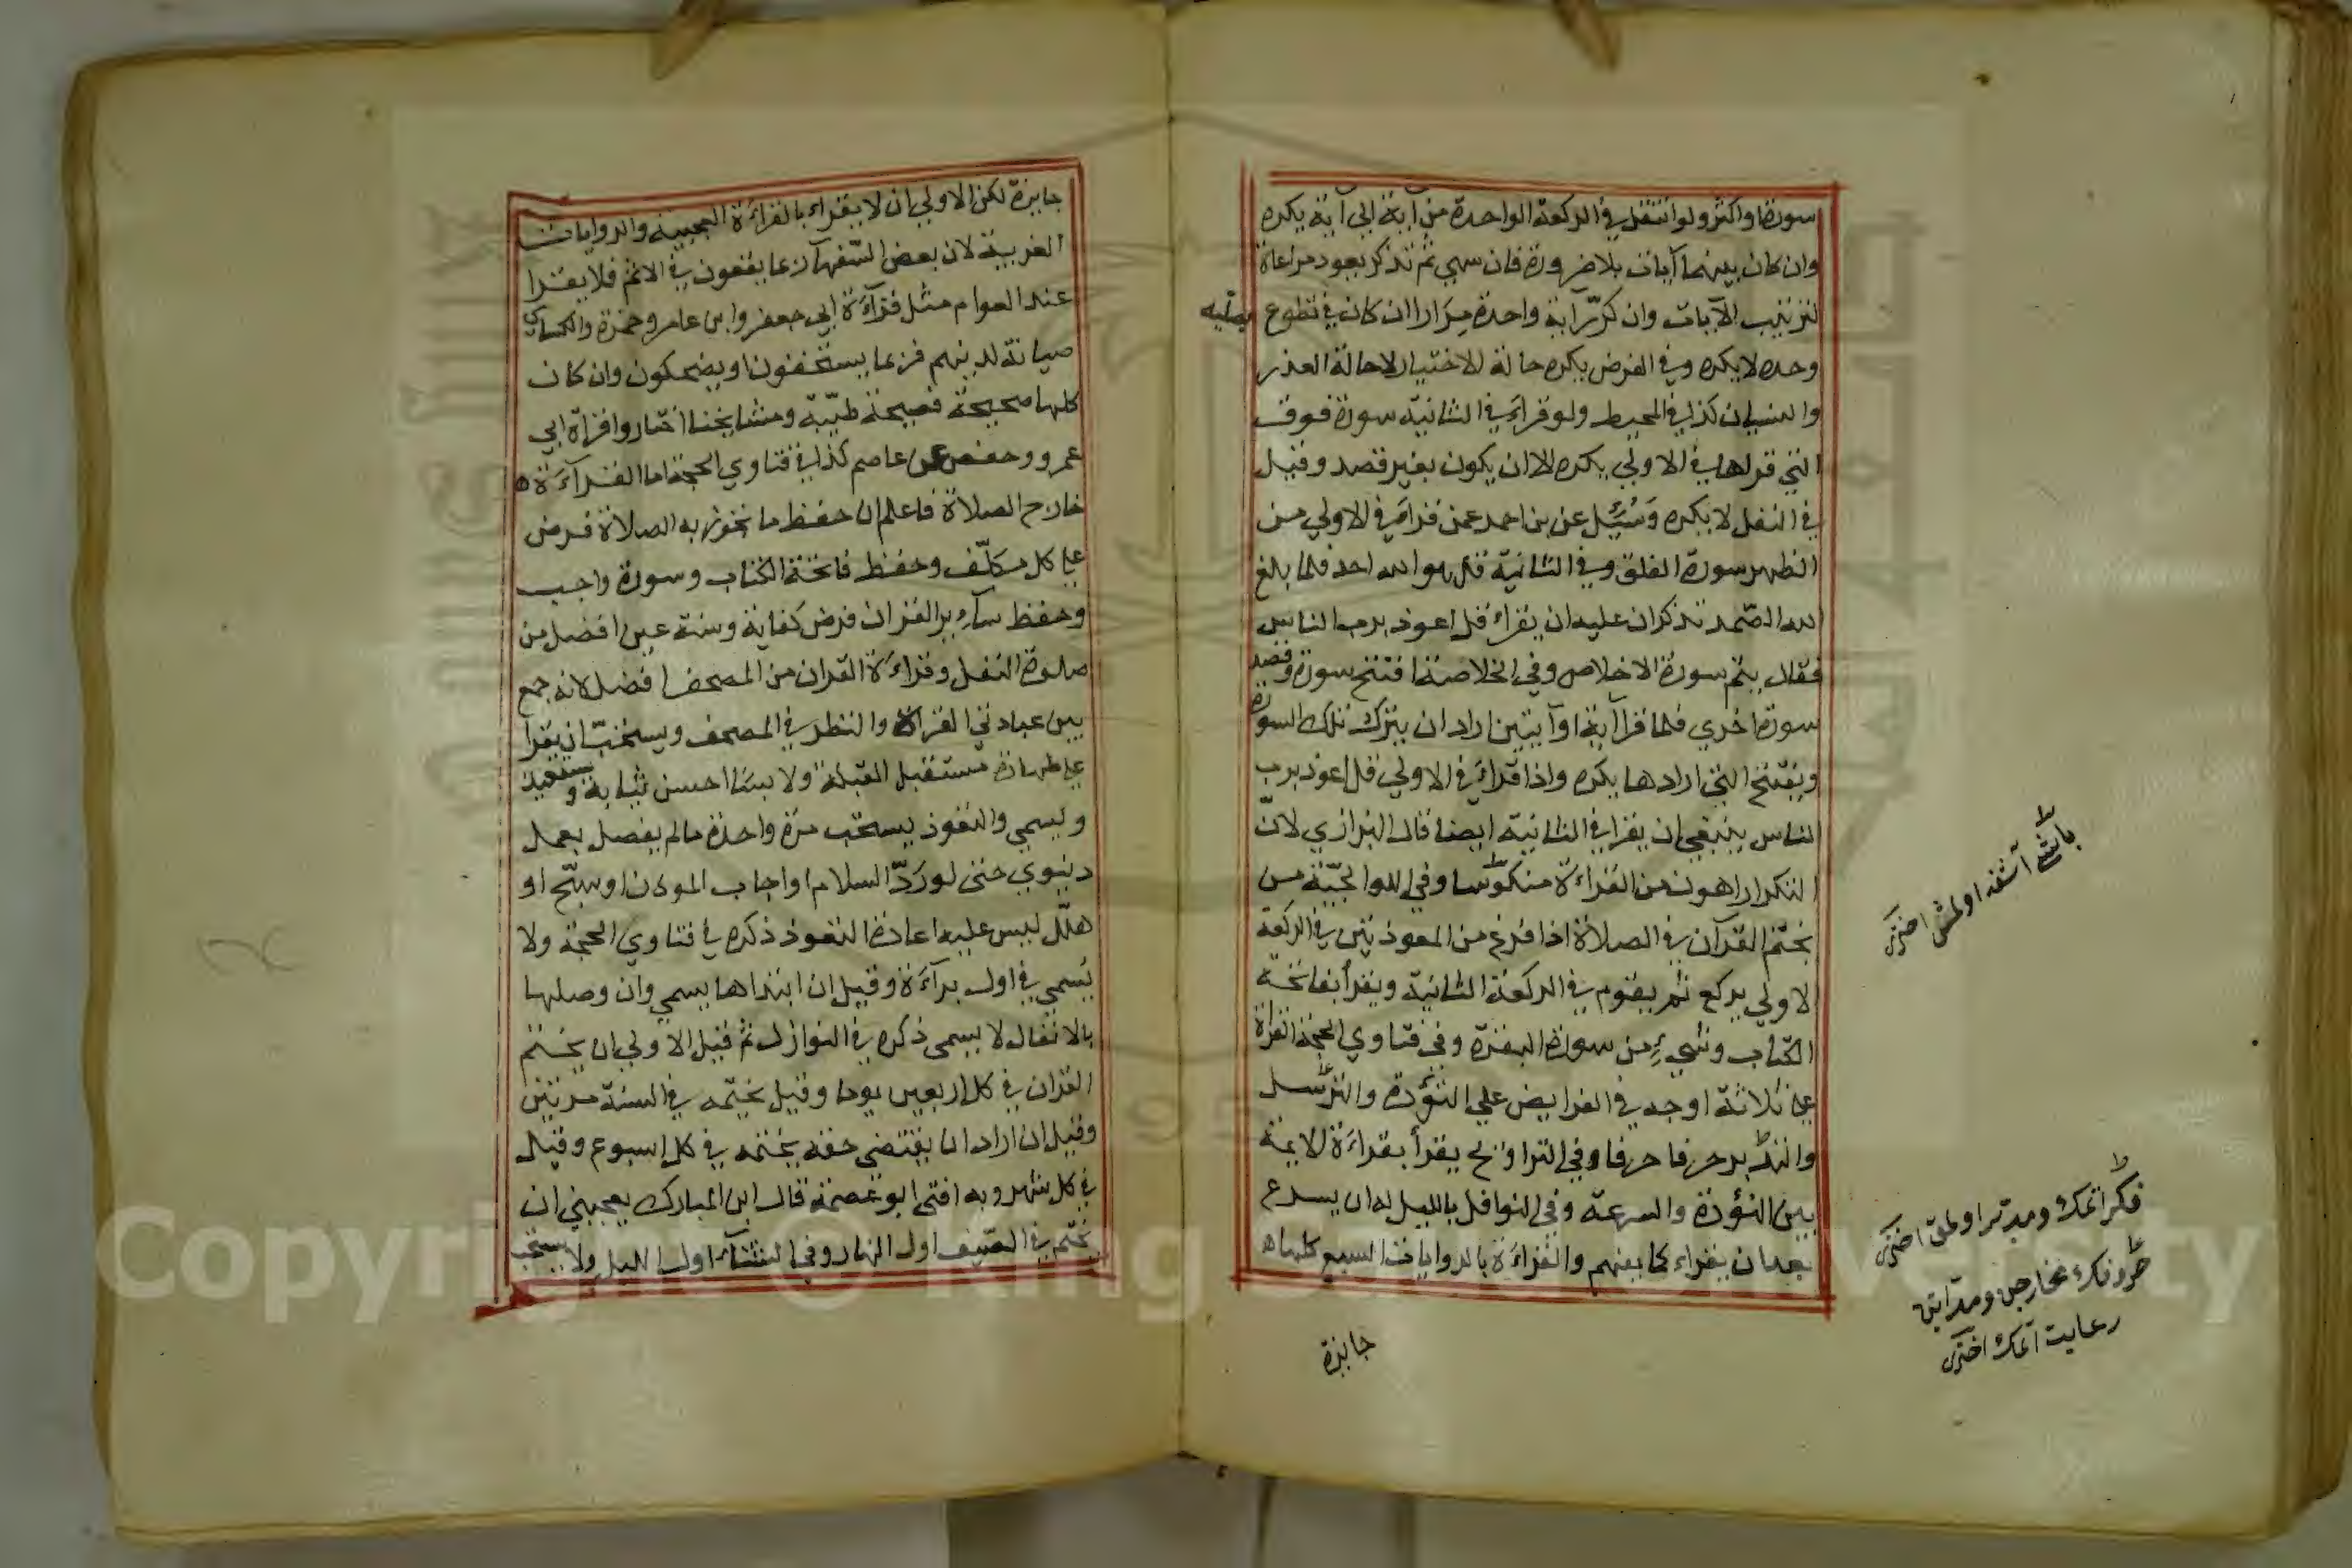 سورة او اكثر ولو انتقل في الركعة الواحدة من آية الى آية يكره
وان كان بينهما آيات بلا ضرورة فان سهي ثم تذكر يعود مراعاة
لترتيب الآيات وان كرّر آية واحدة مرارا ان كان في تطوع يصليه
وحده لا يكره وفي الفرض يكره حالة الاختيار لا حالة العذر
والنسيان كذا في المحيط ولو قراء في الثانية سورة فوق
التي قراها في الاولي يكره الا ان يكون بغير قصد وقيل
في النفل لا يكره وسُئِل عن بن احمد عمن قراء في الاولي من
الظهر سورة الفلق وفي الثانية قل هو الله احد فلما بلغ
الله الصّمد تذكر ان عليه ان يقراء قل اعوذ برب الناس
فقال يتم سورة الاخلاص وفي الخلاصة افتتح سورة وقصد
سورة اخري فلما قرا آية او آيتين اراد ان يترك تلك السورة
ويفتتح التي ارادها يكره واذا قراء في الاولي قل اعوذ برب
الناس ينبغي ان يقرا في الثانية ايضا قال البزازي لانّ
التكرار اهون من القراءة منكوسا وفي الولوالجيّة من
يختم القرآن في الصلاة اذا فرغ من المعوذتين في الركعة
لاولي يركع ثم يقوم في الركعة الثانية ويقرأ بفاتحة
الكتاب وشيء من سورة البقرة وفي فتاوي الحجة القراة
علي ثلاثة اوجه في الفرايض علي التؤدة والترسل
والتدبر حرفا حرفا وفي التراويح يقرأ بقراءة الايمة
بين التؤدة والسرعة وفي النوافل بالليل له ان يسرع
بعد ان يقراء كما يفهم والقراءة بالروايات السبع كلها
جايزة
باشى آشغه اولمش
فكر اتمك ومدبر اولمق
حرفك مخارجن
رعايت اتمك
جايزة لكن الاولي ان لا يقراء بالقراءة العجيبة والروايات
الغريبة لان بعض السّفهآ ربما يقعون في الاثم فلا يقرا
عند العوام مثل قرآءة ابي جعفر وابن عامر وحمزة والكساي
صيانة لدينهم فربما يستخفون او يضحكون وان كان
كلها صحيحة فصيحة طيّبة ومشايخنا اختاروا قراة ابي
عمرو وحفص عن عاصم كذا في فتاوي الحجة اما القرآءة
خارج الصلاة فاعلم ان حفظ ما تجوز به الصلاة فرض
علي كل مكلّف وحفظ فاتحة الكتاب وسورة واجب
وحفظ ساير القران فرض كفاية وسنة عين افضل من
صلوة النفل وقراءة القران من المصحف افضل لانه جمع
بين عبادتي القراة والنظر في المصحف ويستحبّ ان يقرا
علي طهارة مستقبل القبلة ولابسا احسن ثيابه ويستعيذ
ويسمي والتعوذ يستحب مرة واحدة مالم يفصل بعمل
دنيوي حتى لو ردّ السلام او اجاب الموذن او سبّح او
هلّل ليس عليه اعادة التعوذ ذكره في فتاوي الحجة ولا
يُسمي في اول براءة وقيل ان ابتداها يسمي وان وصلها
بالانفال لا يسمى ذكره في النوازل ثم قيل الاولي ان يختم
القران في كل اربعين يوما وقيل يختمه في السنة مرتين
وقيل ان اراد ان يقتضي حقه يختمه في كل اسبوع وقيل
في كل شهر وبه افتى ابو عصمة قال ابن المبارك يعجبني ان
يختم في الصّيف اول النهار وفي الشتآء اول الليل ولا يستحب
Copyright © King Saud University